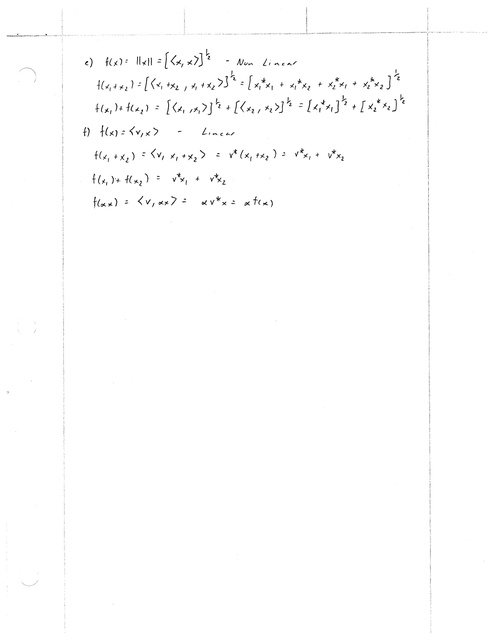 e) f(x) = ||x|| = [<x, x>]^½ - Non Linear
f(x₁+x₂) = [<x₁+x₂, x₁+x₂>]^½ = [x₁*x₁ + x₁*x₂ + x₂*x₁ + x₂*x₂]^½
f(x₁)+f(x₂) = [<x₁,x₁>]^½ + [<x₂,x₂>]^½ = [x₁*x₁]^½ + [x₂*x₂]^½
f) f(x) = <v,x> - Linear
f(x₁+x₂) = <v, x₁+x₂> = v*(x₁+x₂) = v*x₁ + v*x₂
f(x₁)+f(x₂) = v*x₁ + v*x₂
f(αx) = <v, αx> = αv*x = αf(x)